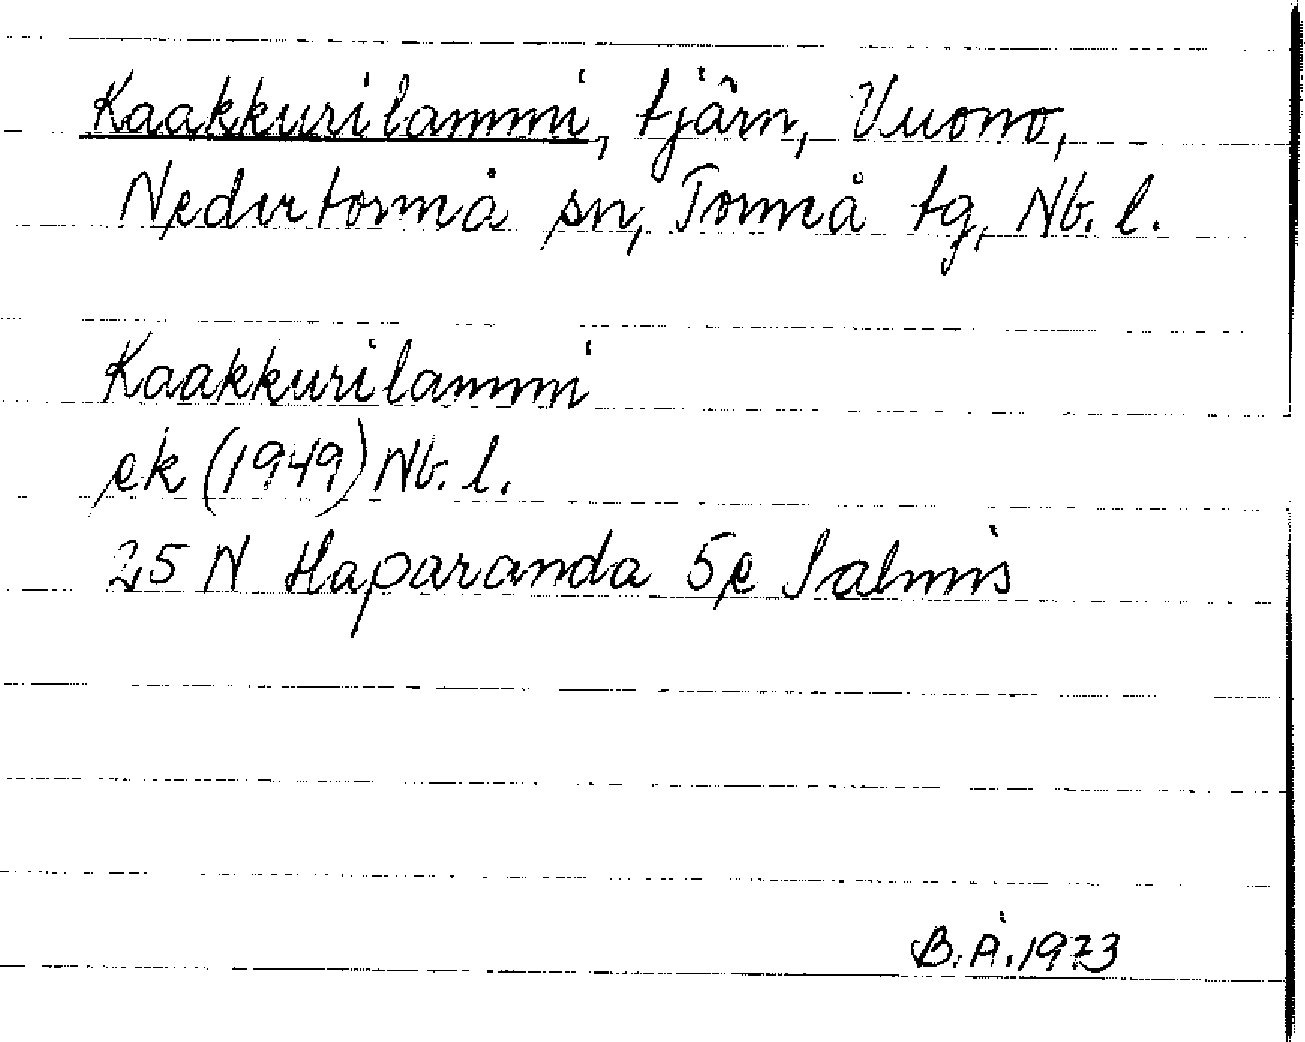 Kaakkurilammi, tjärn, Vuono,
Nedertorneå sn, Torneå tg, Nb. l.
Kaakkurilammi
ek (1949) Nb. l.
25 N Haparanda 5e Salmis
B.Å. 1973